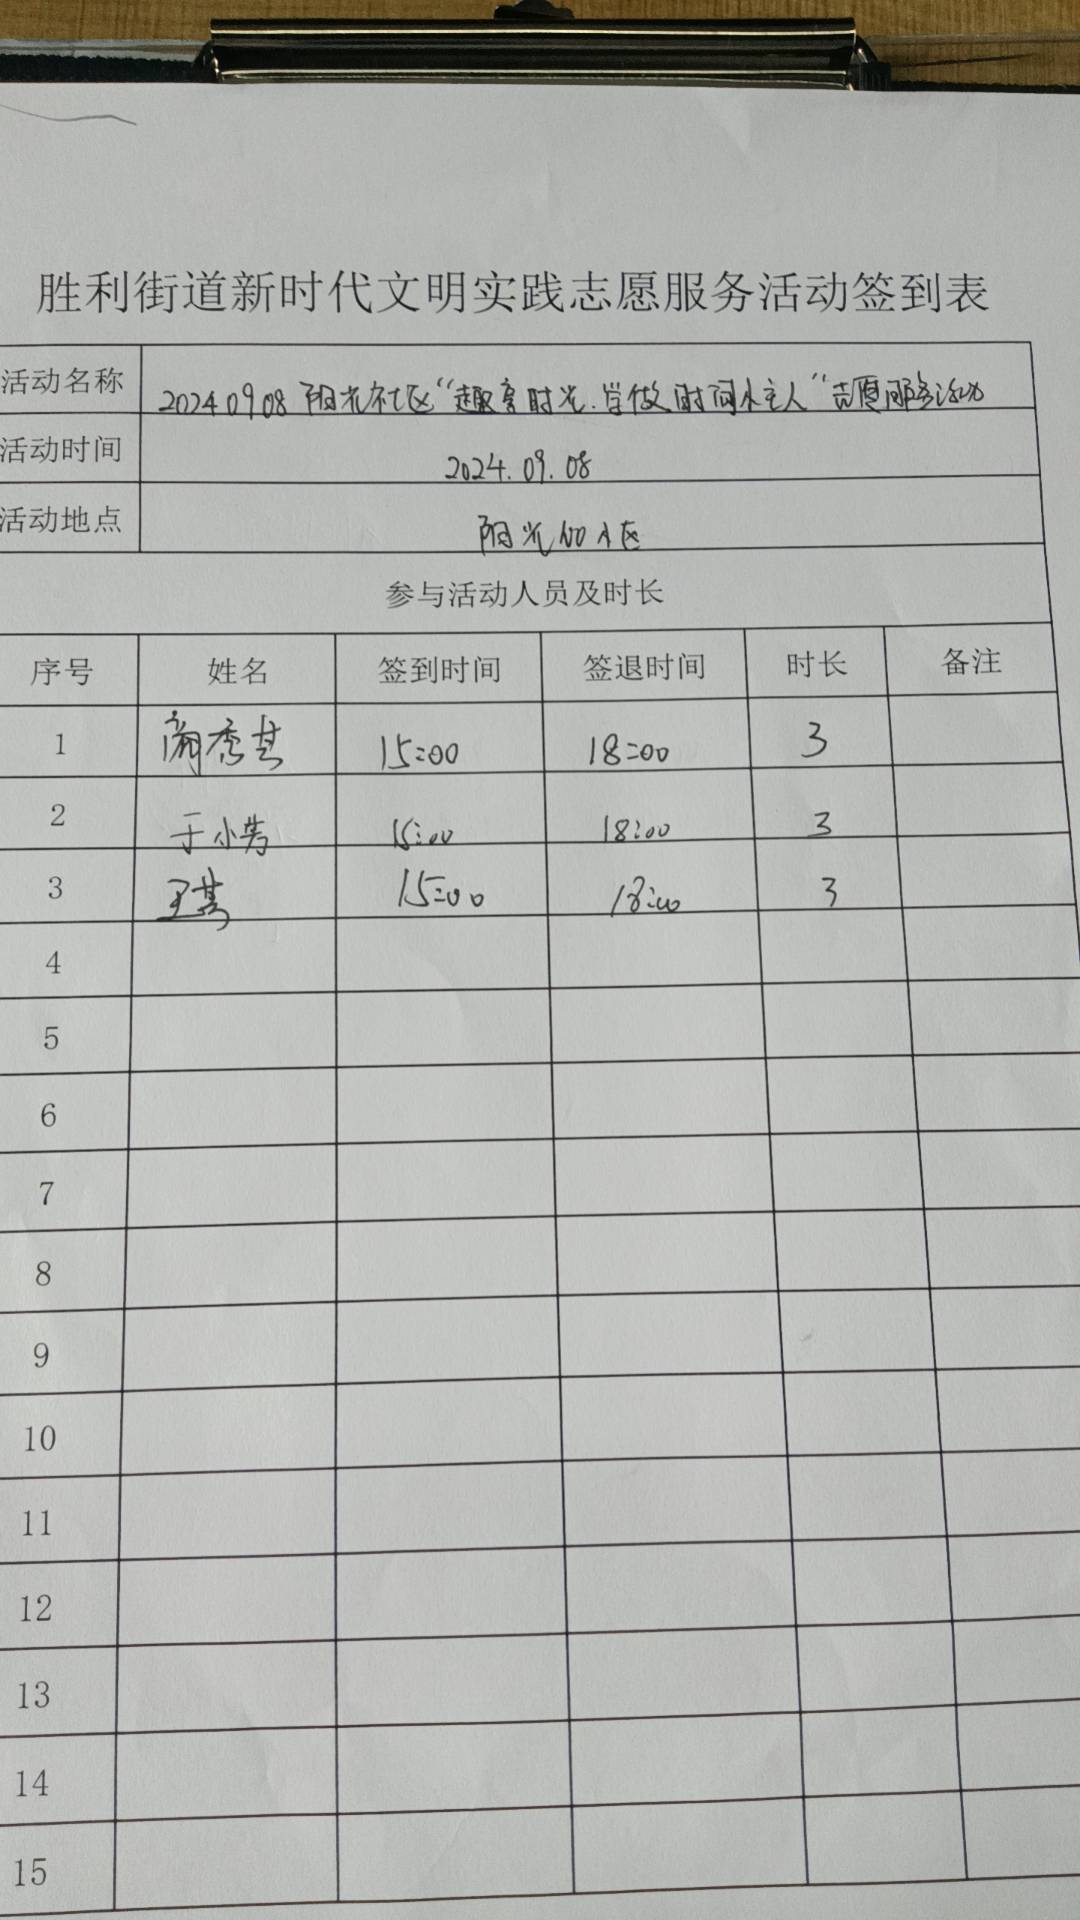 胜利街道新时代文明实践志愿服务活动签到表
活动名称 20240908 阳光社区“趣享时光.学做时间小主人”志愿服务活动
活动时间 2024.09.08
活动地点 阳光100小区
参与活动人员及时长
序号 姓名 签到时间 签退时间 时长 备注
1 15:00 18:00 3
2 于小芳 15:00 18:00 3
3 15:00 18:00 3
4
5
6
7
8
9
10
11
12
13
14
15